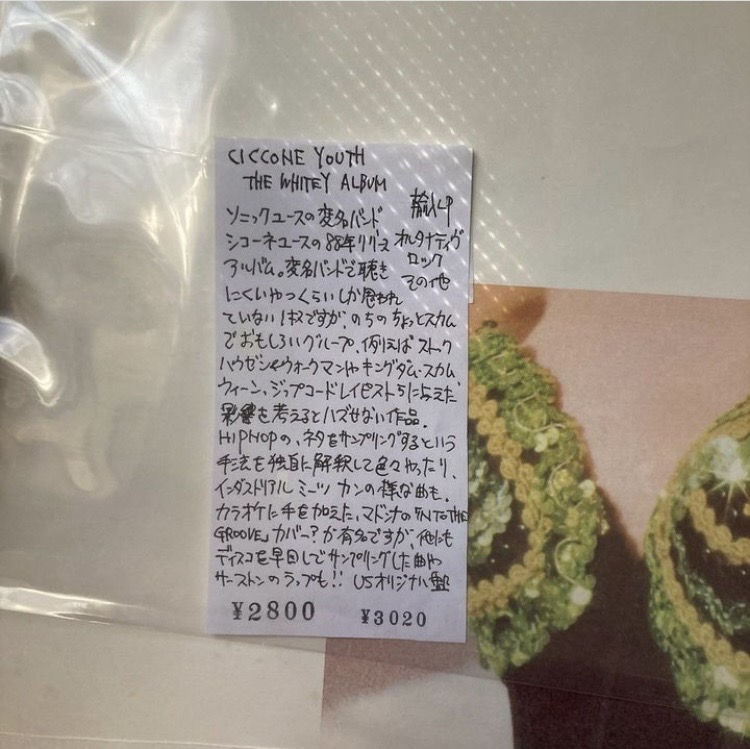 CICCONE YOUTH
THE WHITEY ALBUM
輸入LP
オルタナティヴ
ロック
その他
ソニックユースの変名バンド
シコーネユースの88年リリース
アルバム。変名バンドで聴き
にくいやつくらいしか思われ
ていない1枚ですが、のちのちょっとスカム
でおもしろいグループ、例えばストック
ハウゼン&ウォークマンやキングダム・スカム
ウィーン、ジップコードレイピストらに与えた
影響を考えるとハズせない作品.
HIPHOPの、ネタをサンプリングするという
手法を独自に解釈して色々やったり、
インダストリアル ミーツ カンの様な曲も.
カラオケに手を加えた、マドンナの「INTO THE
GROOVE」カバー?が有名ですが、他にも
ディスコを早回しでサンプリングした曲や
サーストンのラップも!! USオリジナル盤
¥2800 ¥3020